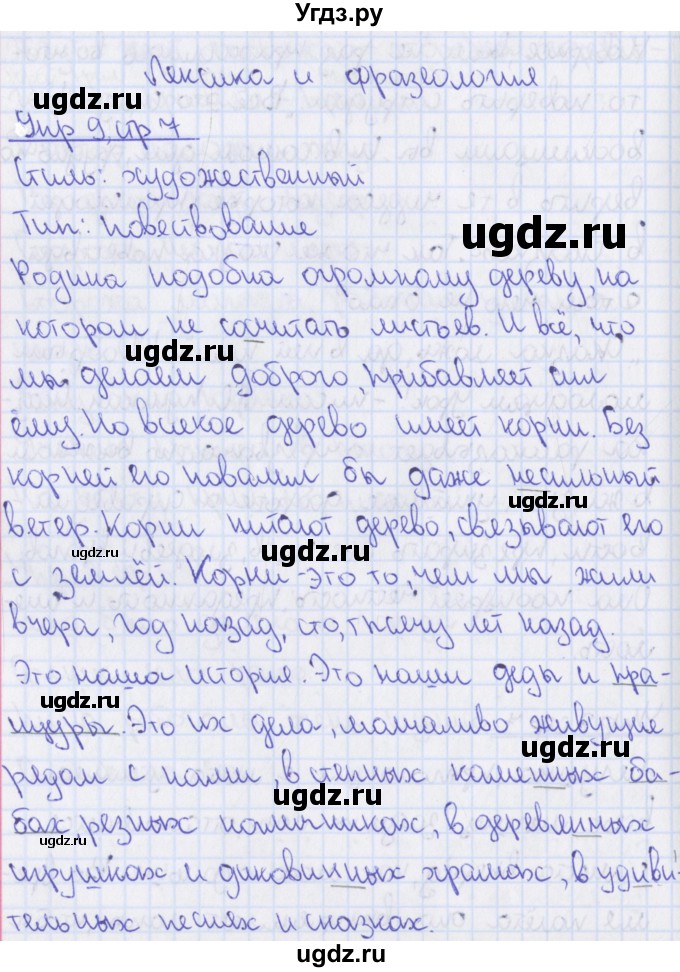 Угдз.ру
Лексика и фразеология
ugdz.ru
Упр 9, стр 7
Стиль: художественный
ugdz.ru
Тип: повествование
Родина подобна огромному дереву, на
котором не сочитать листьев. И всё, что
ugdz.ru
мы делаем доброго, прибавляет сил
ему. Но всякое дерево имеет корни. Без
корней его повалил бы даже несильный
ugdz.ru
ветер. Корни питают дерево, связывают его
ugdz.ru
ugdz.ru
с землёй. Корни - это то, чем мы жили
вчера, год назад, сто, тысячу лет назад.
Это наша история. Это наши деды и пра-
ugdz.ru
щуры. Это их дела, молчаливо живущие
ugdz.ru
рядом с нами, в степных каменных ба-
ugdz.ru
бах, резных наличниках, в деревянных
ugdz.ru
игрушках и диковинных храмах, в удиви-
тельных песнях и сказках.
ugdz.ru
ugdz.ru